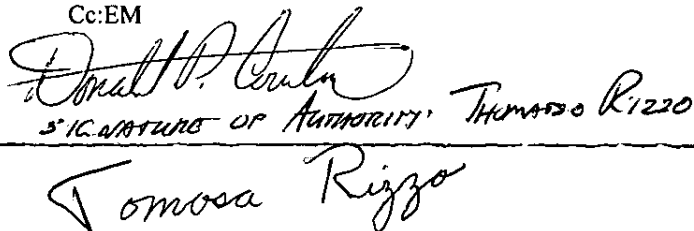 Cc:EM
Donald P.
SIGNATURE OF AUTHORITY: THOMASO RIZZO
Tomosa Rizzo